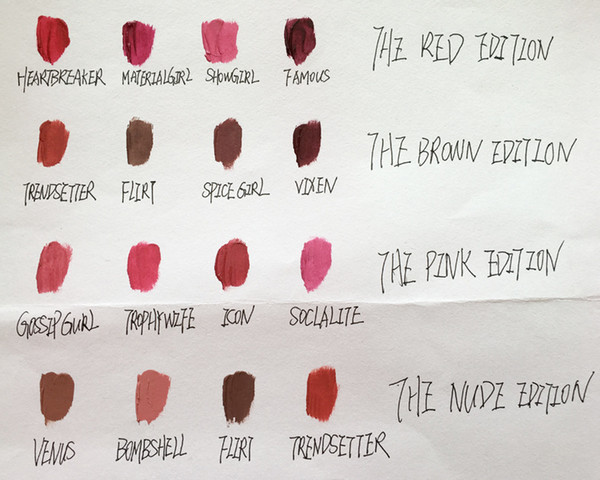 THE RED EDITION
HEARTBREAKER MATERIALGIRL SHOWGIRL FAMOUS
THE BROWN EDITION
TRENDSETTER FLIRT SPICE GIRL VIXEN
THE PINK EDITION
GOSSIP GURL TROPHY WIFE ICON SOCLALITE
THE NUDE EDITION
VENUS BOMBSHELL FLIRT TRENDSETTER